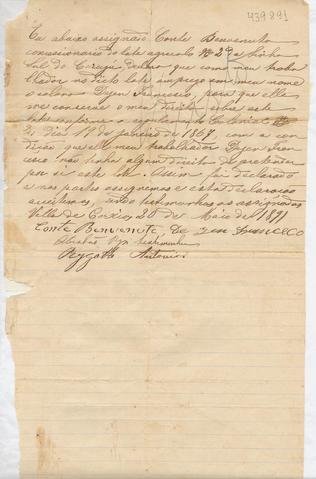 439891
Eu abaixo assignado Conte Benvenuto
concessionario do lote agricolo Nº 2 da linha
declaro que com meu traba
lhador no dicto lote emprego em meu nome
o colono Dejen Francesco, para que elle
me conserve o meu direito sobre este
lote conforme o regulamento
di dia 19 de janeiro de 1867, com a con
dição que elle meu trabalhador Dejen Fran
cesco não tenha algum direito de pretender
por si este lote. Assim foi declarado
e nos partes assignamos e esta declaração
aceitamos, sendo testemunhas os assignados
Villa de Caxias 20 de Maio de 1891
Conte Benvenuto, De Francesco
testemunha
Antonio